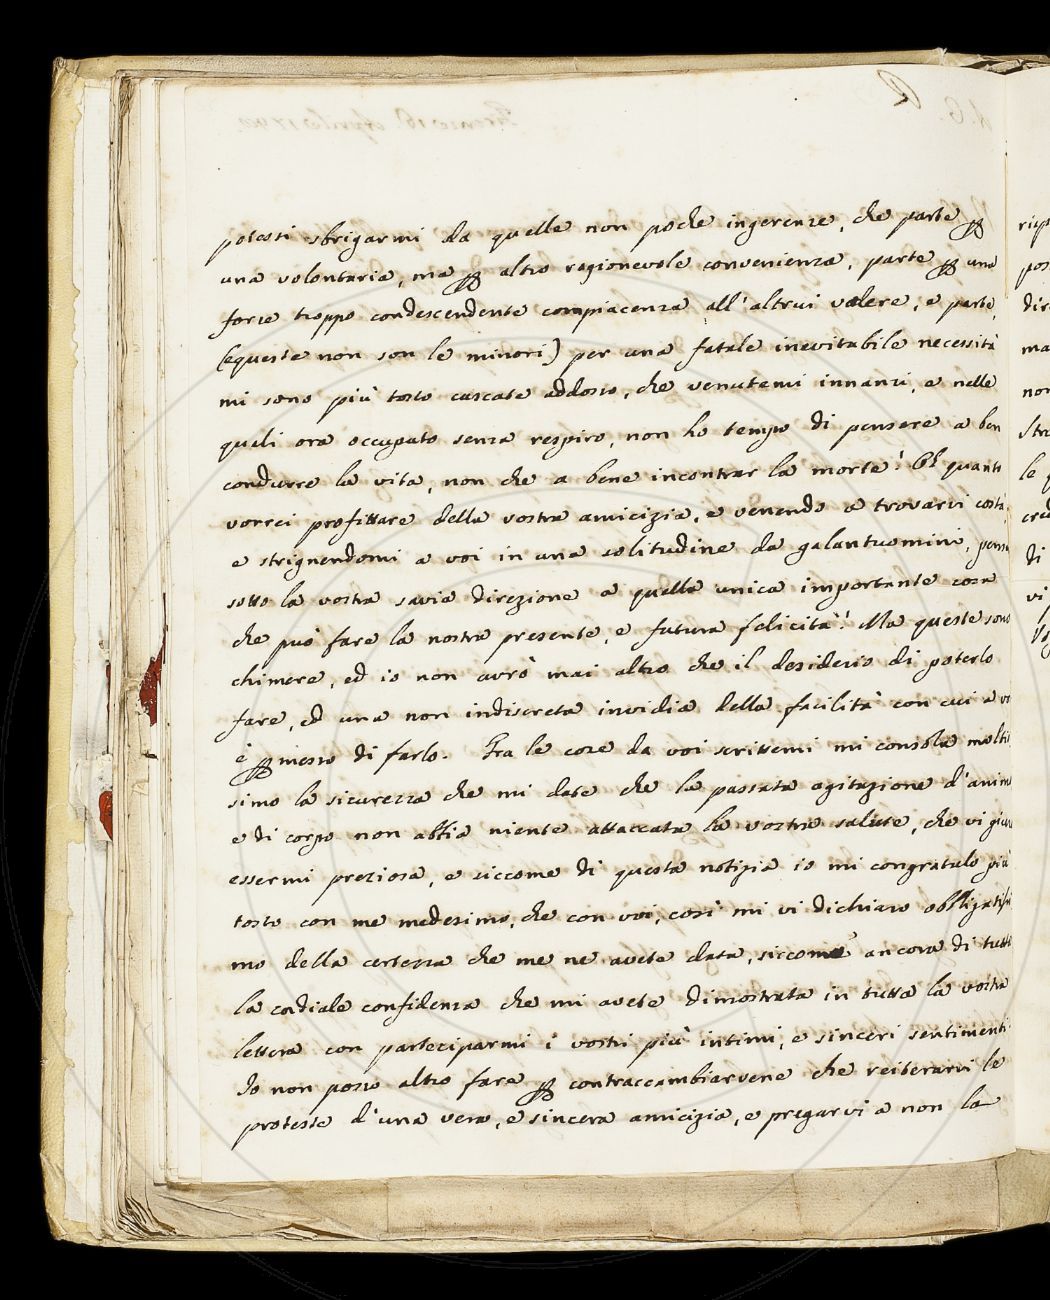 potessi sbrigarmi da quelle non poche ingerenze, che parte p
una volontaria, ma p altro ragionevole convenienza, parte p una
forse troppo condescendente compiacenza all'altrui volere, e parte,
(e queste non son le minori) per una fatale inevitabile necessità
mi sono più tosto cascate addosso, che venutemi innanzi, e nelle
quali ora occupato senza respiro, non ho tempo di pensare a ben
condurre la vita, non che a bene incontrar la morte! Oh quanto
vorrei profittare della vostra amicizia, e venendo a trovarvi costà,
e strignendomi a voi in una solitudine da galantuomini,
sotto la vostra savia direzione a quella unica importante cosa
che può fare la nostra presente, e futura felicità! Ma queste sono
chimere, ed io non avrò mai altro che il desiderio di poterlo
fare, ed una non indiscreta invidia della facilità con cui a vi
è pmesso di farlo. Fra le cose da voi scrittemi mi consola moltis
simo la sicurezza che mi date che la passata agitazione d'animo
e di corpo non abbia niente attaccata la vostra salute, che vi giuro
essermi preziosa, e siccome di questa notizia io mi congratulo più
tosto con me medesimo, che con voi, così mi vi dichiaro obbligatissi
mo della certezza che me ne avete data, siccome ancora di tutta
la cordiale confidenza che mi avete dimostrata in tutta la vostra
lettera con parteciparmi i vostri più intimi, e sinceri sentimenti
Io non posso altro fare p contraccambiarvene che reiterarvi le
proteste d'una vera, e sincera amicizia, e pregarvi a non la